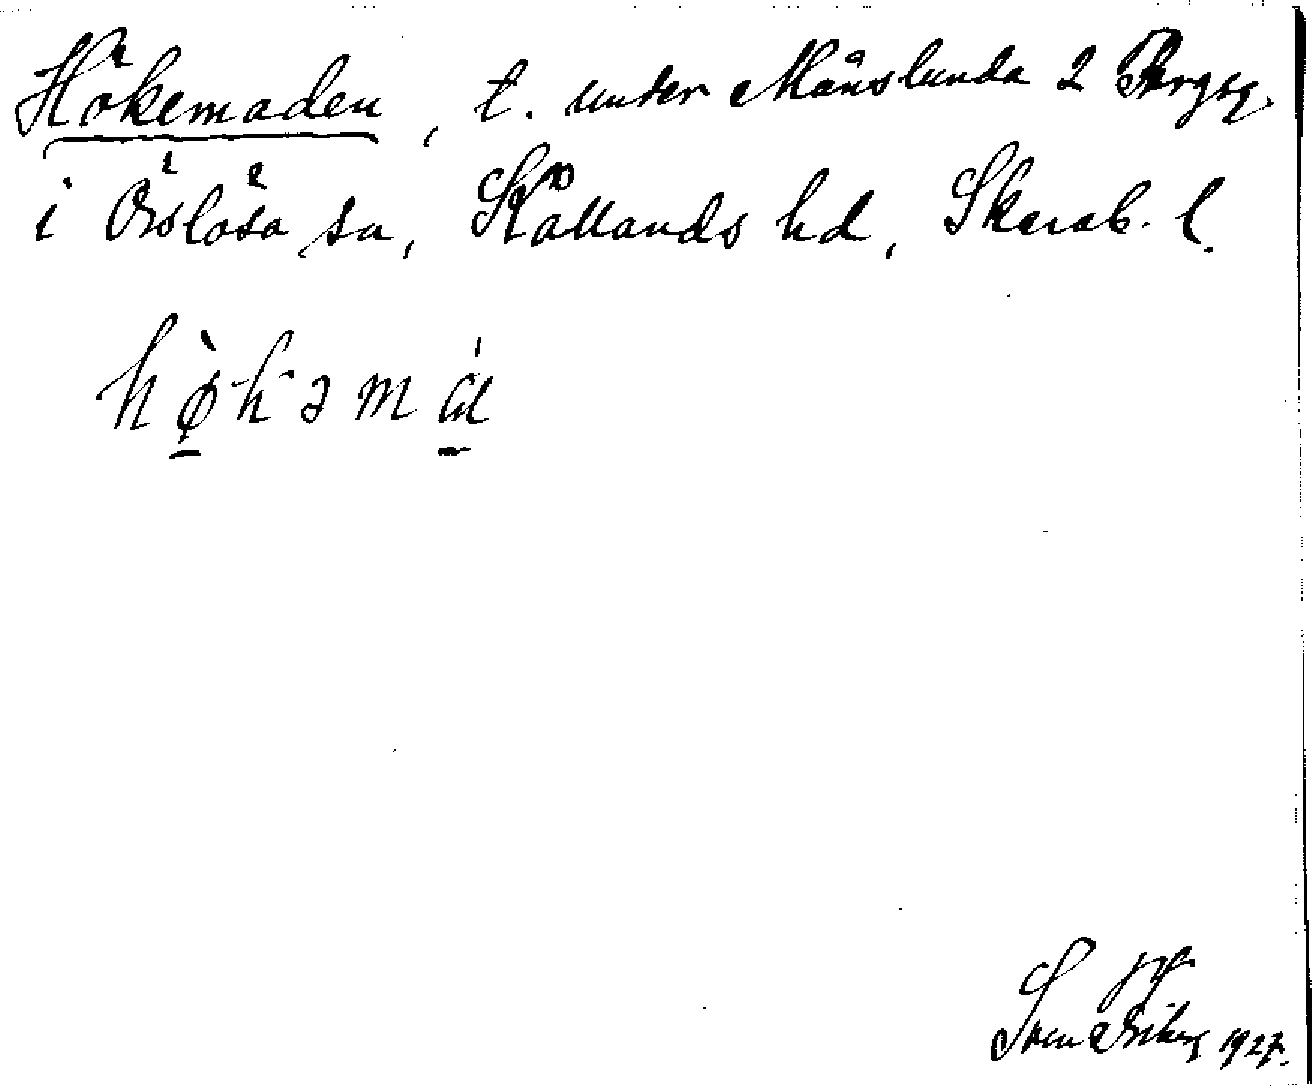 Hökemaden, t. under Månslunda 2 Bergsg.
i Örslösa sn, Kållands hd, Skarab. l.
hø̀kəmá
Sven 1927.